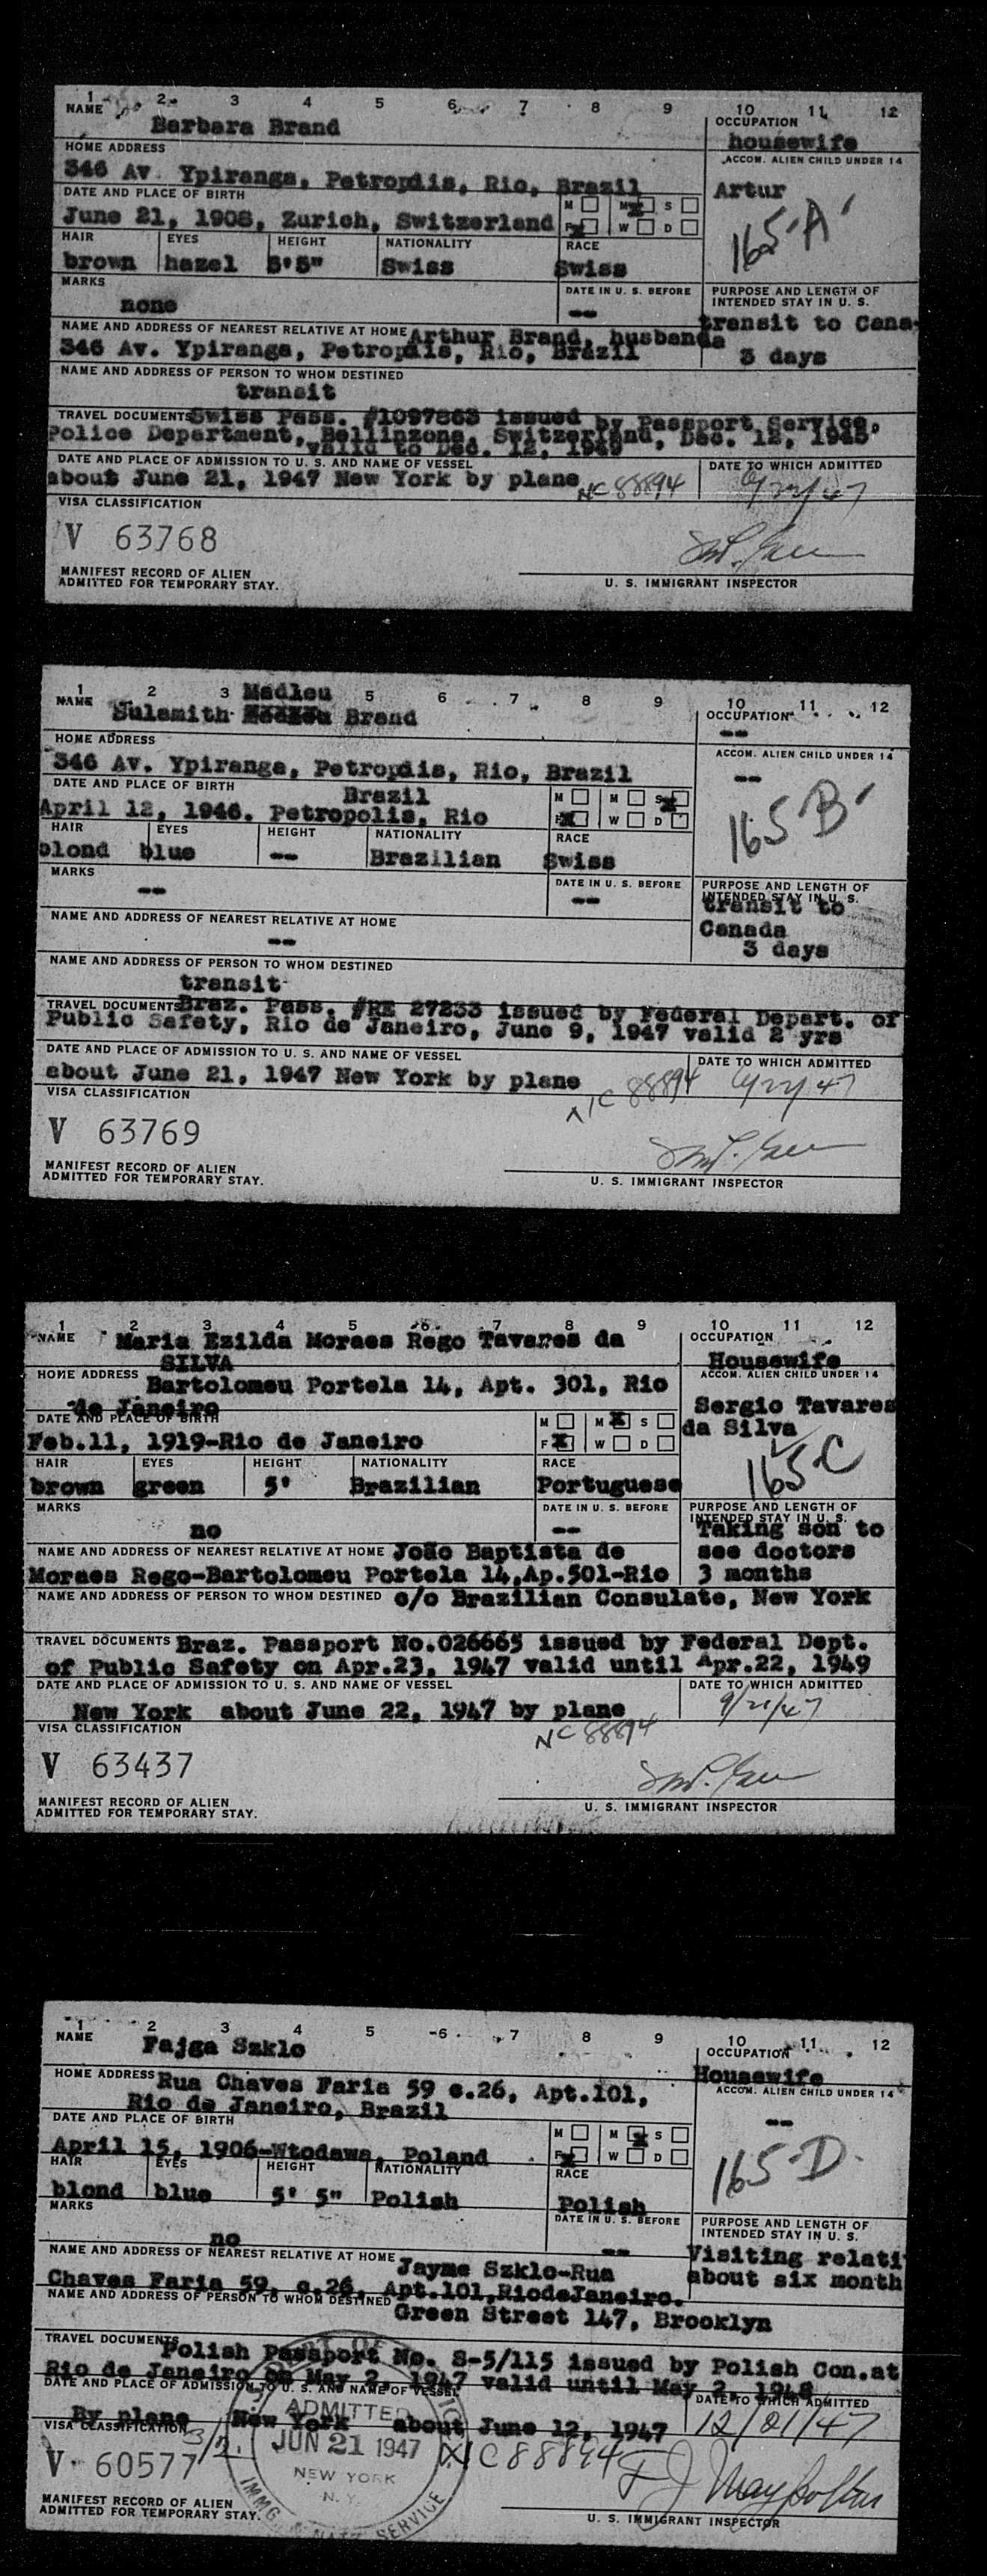 1 2 3 4 5 6 7 8 9 10 11 12
NAME Barbara Brand
OCCUPATION housewife
HOME ADDRESS
346 Av. Ypiranga, Petropolis, Rio, Brazil
ACCOM. ALIEN CHILD UNDER 14
Artur
165-A
DATE AND PLACE OF BIRTH
June 21, 1908, Zurich, Switzerland
M M S
F W D
HAIR EYES HEIGHT NATIONALITY RACE
brown hazel 5'5" Swiss Swiss
MARKS
none
DATE IN U. S. BEFORE
--
PURPOSE AND LENGTH OF
INTENDED STAY IN U. S.
transit to Cana-
da
3 days
NAME AND ADDRESS OF NEAREST RELATIVE AT HOME Arthur Brand, husband
346 Av. Ypiranga, Petropolis, Rio, Brazil
NAME AND ADDRESS OF PERSON TO WHOM DESTINED
transit
TRAVEL DOCUMENTS Swiss Pass. #1097863 issued by Passport Service,
Police Department, Bellinzona, Switzerland, Dec. 12, 1945
valid to Dec. 12, 1949
DATE AND PLACE OF ADMISSION TO U. S. AND NAME OF VESSEL
about June 21, 1947 New York by plane NC 88894
DATE TO WHICH ADMITTED
6/22/47
VISA CLASSIFICATION
V 63768
MANIFEST RECORD OF ALIEN
ADMITTED FOR TEMPORARY STAY.
U. S. IMMIGRANT INSPECTOR
1 2 3 Madleu 5 6 7 8 9 10 11 12
NAME Sulamith Brand
OCCUPATION
--
HOME ADDRESS
346 Av. Ypiranga, Petropolis, Rio, Brazil
ACCOM. ALIEN CHILD UNDER 14
--
165-B
DATE AND PLACE OF BIRTH Brazil
April 12, 1946. Petropolis, Rio
M M S
F W D
HAIR EYES HEIGHT NATIONALITY RACE
blond blue -- Brazilian Swiss
MARKS
--
DATE IN U. S. BEFORE
--
PURPOSE AND LENGTH OF
INTENDED STAY IN U. S.
transit to
Canada
3 days
NAME AND ADDRESS OF NEAREST RELATIVE AT HOME
--
NAME AND ADDRESS OF PERSON TO WHOM DESTINED
transit
TRAVEL DOCUMENTS Braz. Pass. #RE 27233 issued by Federal Depart. of
Public Safety, Rio de Janeiro, June 9, 1947 valid 2 yrs
DATE AND PLACE OF ADMISSION TO U. S. AND NAME OF VESSEL
about June 21, 1947 New York by plane NC 88894
DATE TO WHICH ADMITTED
6/22/47
VISA CLASSIFICATION
V 63769
MANIFEST RECORD OF ALIEN
ADMITTED FOR TEMPORARY STAY.
U. S. IMMIGRANT INSPECTOR
1 2 3 4 5 6 7 8 9 10 11 12
NAME Maria Ezilda Moraes Rego Tavares da
SILVA
OCCUPATION
Housewife
HOME ADDRESS Bartolomeu Portela 14, Apt. 301, Rio
de Janeiro
ACCOM. ALIEN CHILD UNDER 14
Sergio Tavares
da Silva
165-C
DATE AND PLACE OF BIRTH
Feb.11, 1919-Rio de Janeiro
M M S
F W D
HAIR EYES HEIGHT NATIONALITY RACE
brown green 5' Brazilian Portuguese
MARKS
no
DATE IN U. S. BEFORE
--
PURPOSE AND LENGTH OF
INTENDED STAY IN U. S.
Taking son to
see doctors
3 months
NAME AND ADDRESS OF NEAREST RELATIVE AT HOME João Baptista de
Moraes Rego-Bartolomeu Portela 14,Ap.501-Rio
NAME AND ADDRESS OF PERSON TO WHOM DESTINED c/o Brazilian Consulate, New York
TRAVEL DOCUMENTS Braz. Passport No.026665 issued by Federal Dept.
of Public Safety on Apr.23, 1947 valid until Apr.22, 1949
DATE AND PLACE OF ADMISSION TO U. S. AND NAME OF VESSEL
New York about June 22, 1947 by plane NC 88894
DATE TO WHICH ADMITTED
9/21/47
VISA CLASSIFICATION
V 63437
MANIFEST RECORD OF ALIEN
ADMITTED FOR TEMPORARY STAY.
U. S. IMMIGRANT INSPECTOR
1 2 3 4 5 6 7 8 9 10 11 12
NAME Fajga Szklo
OCCUPATION
Housewife
HOME ADDRESS Rua Chaves Faria 59 c.26, Apt.101,
Rio de Janeiro, Brazil
ACCOM. ALIEN CHILD UNDER 14
--
165-D
DATE AND PLACE OF BIRTH
April 15, 1906-Wtodawa, Poland
M M S
F W D
HAIR EYES HEIGHT NATIONALITY RACE
blond blue 5' 5" Polish Polish
MARKS
no
DATE IN U. S. BEFORE
--
PURPOSE AND LENGTH OF
INTENDED STAY IN U. S.
Visiting relati
about six month
NAME AND ADDRESS OF NEAREST RELATIVE AT HOME Jayme Szklo-Rua
Chaves Faria 59, c.26, Apt.101,RiodeJaneiro.
NAME AND ADDRESS OF PERSON TO WHOM DESTINED
Green Street 147, Brooklyn
TRAVEL DOCUMENTS Polish Passport No. S-5/115 issued by Polish Con.at
Rio de Janeiro on May 2, 1947 valid until May 2, 1948
DATE AND PLACE OF ADMISSION TO U. S. AND NAME OF VESSEL
By plane New York about June 12, 1947
DATE TO WHICH ADMITTED
12/21/47
VISA CLASSIFICATION
V 60577
3/2
ADMITTED
JUN 21 1947
NEW YORK
N. Y.
IMMG. & NATZ. SERVICE
NC 88894
MANIFEST RECORD OF ALIEN
ADMITTED FOR TEMPORARY STAY.
U. S. IMMIGRANT INSPECTOR